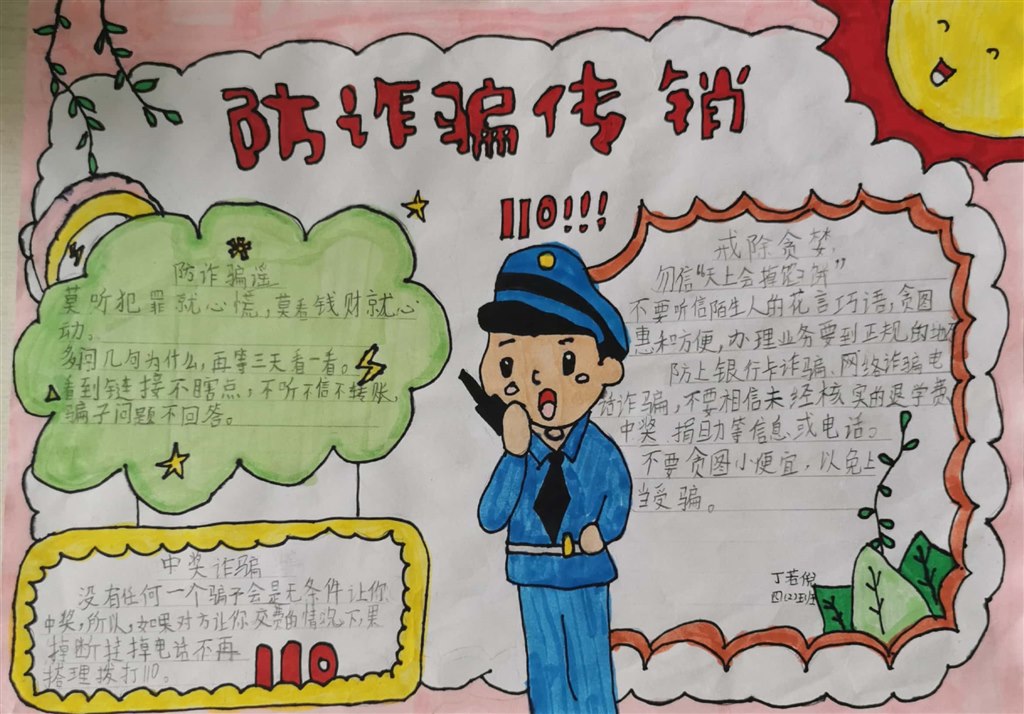 防诈骗传销
110!!!
防诈骗谣
莫听犯罪就心慌,莫看钱财就心
动。
多问几句为什么,再等三天看一看。
看到链接不瞎点,不听不信不转账,
骗子问题不回答。
戒除贪婪,
勿信“天上会掉馅饼”
不要听信陌生人的花言巧语,贪图
惠和方便,办理业务要到正规的地
防上银行卡诈骗、网络诈骗电
话诈骗,不要相信未经核实的退学费
中奖 捐助等信息或电话。
不要贪图小便宜,以免上
当受骗。
中奖诈骗
没有任何一个骗子会是无条件让你
中奖,所以,如果对方让你交费的情况下,果
掉断挂掉电话不再
搭理拨打110。
110
丁若倪
四(2)班